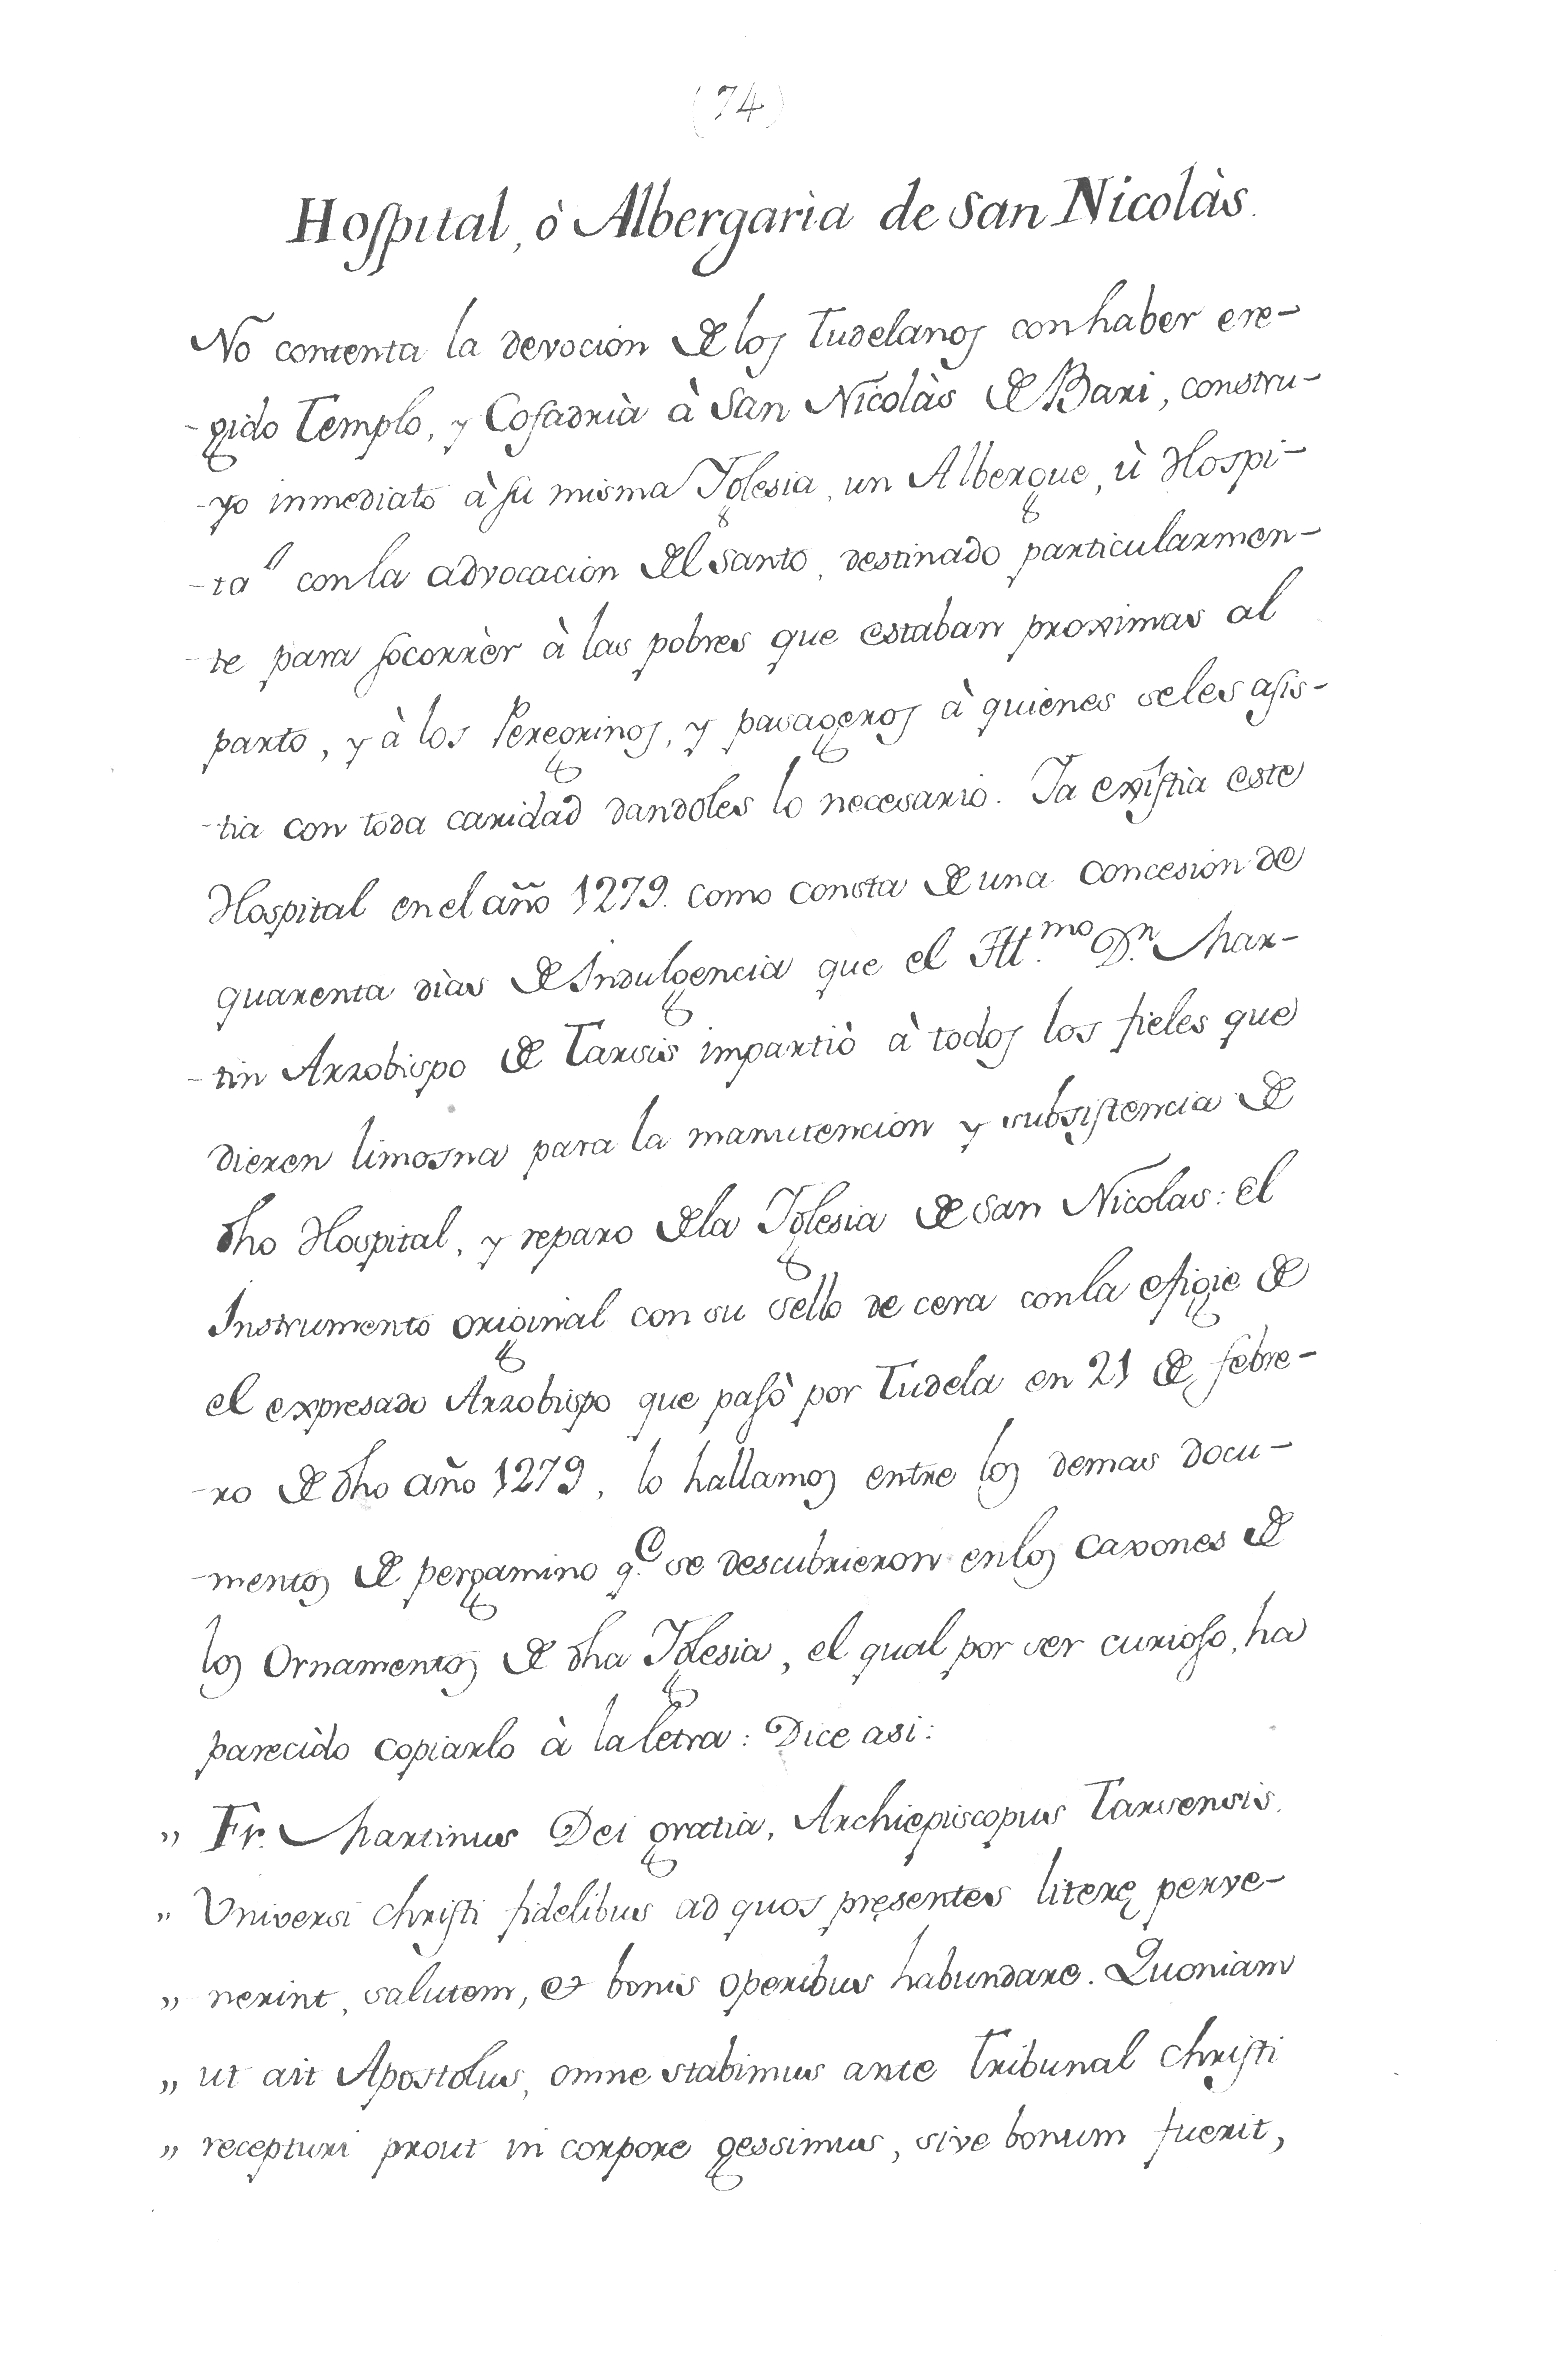 (74)
Hospital, ò Albergarìa de San Nicolàs.
No contenta la devocion de los Tudelanos con haber ere-
-gido Templo, y Cofadrìa à San Nicolàs de Bari, constru-
-yo inmediato à su misma Iglesia, un Albergue, ù Hospi-
-tal con la advocacion del Santo, destinado particularmen-
-te para socorrèr à las pobres que estaban proximas al
parto, y à los Peregrinos, y pasageros à quienes se les asis-
-tia con toda caridad dandoles lo necesario. Ya existìa este
Hospital en el año 1279. como consta de una concesion de
quarenta dìas de Indulgencia que el Ill.mo D.n Mar-
-tin Arzobispo de Tarsis impartiò à todos los fieles que
dieren limosna para la manutencion y subsistencia de
dho Hospital, y reparo de la Iglesia de San Nicolas: el
Instrumento original con su sello de cera con la efigie de
el expresado Arzobispo que pasò por Tudela en 21 de febre-
-ro de dho año 1279, lo hallamos entre los demas docu-
-mentos de pergamino q.e se descubrieron en los caxones de
los Ornamentos de dha Iglesia, el qual por ser curioso, ha
parecido copiarlo à la letra: Dice asi:
" Fr. Martinus Dei gratia, Archiepiscopus Tarsensis.
" Universi Christi fidelibus ad quos pręsentes literę perve-
" nerint, salutem, et bonis operibus habundare. Quoniam
" ut ait Apostolus, omne stabimus ante Tribunal Christi
" recepturi prout in corpore gessimus, sive bonum fuerit,